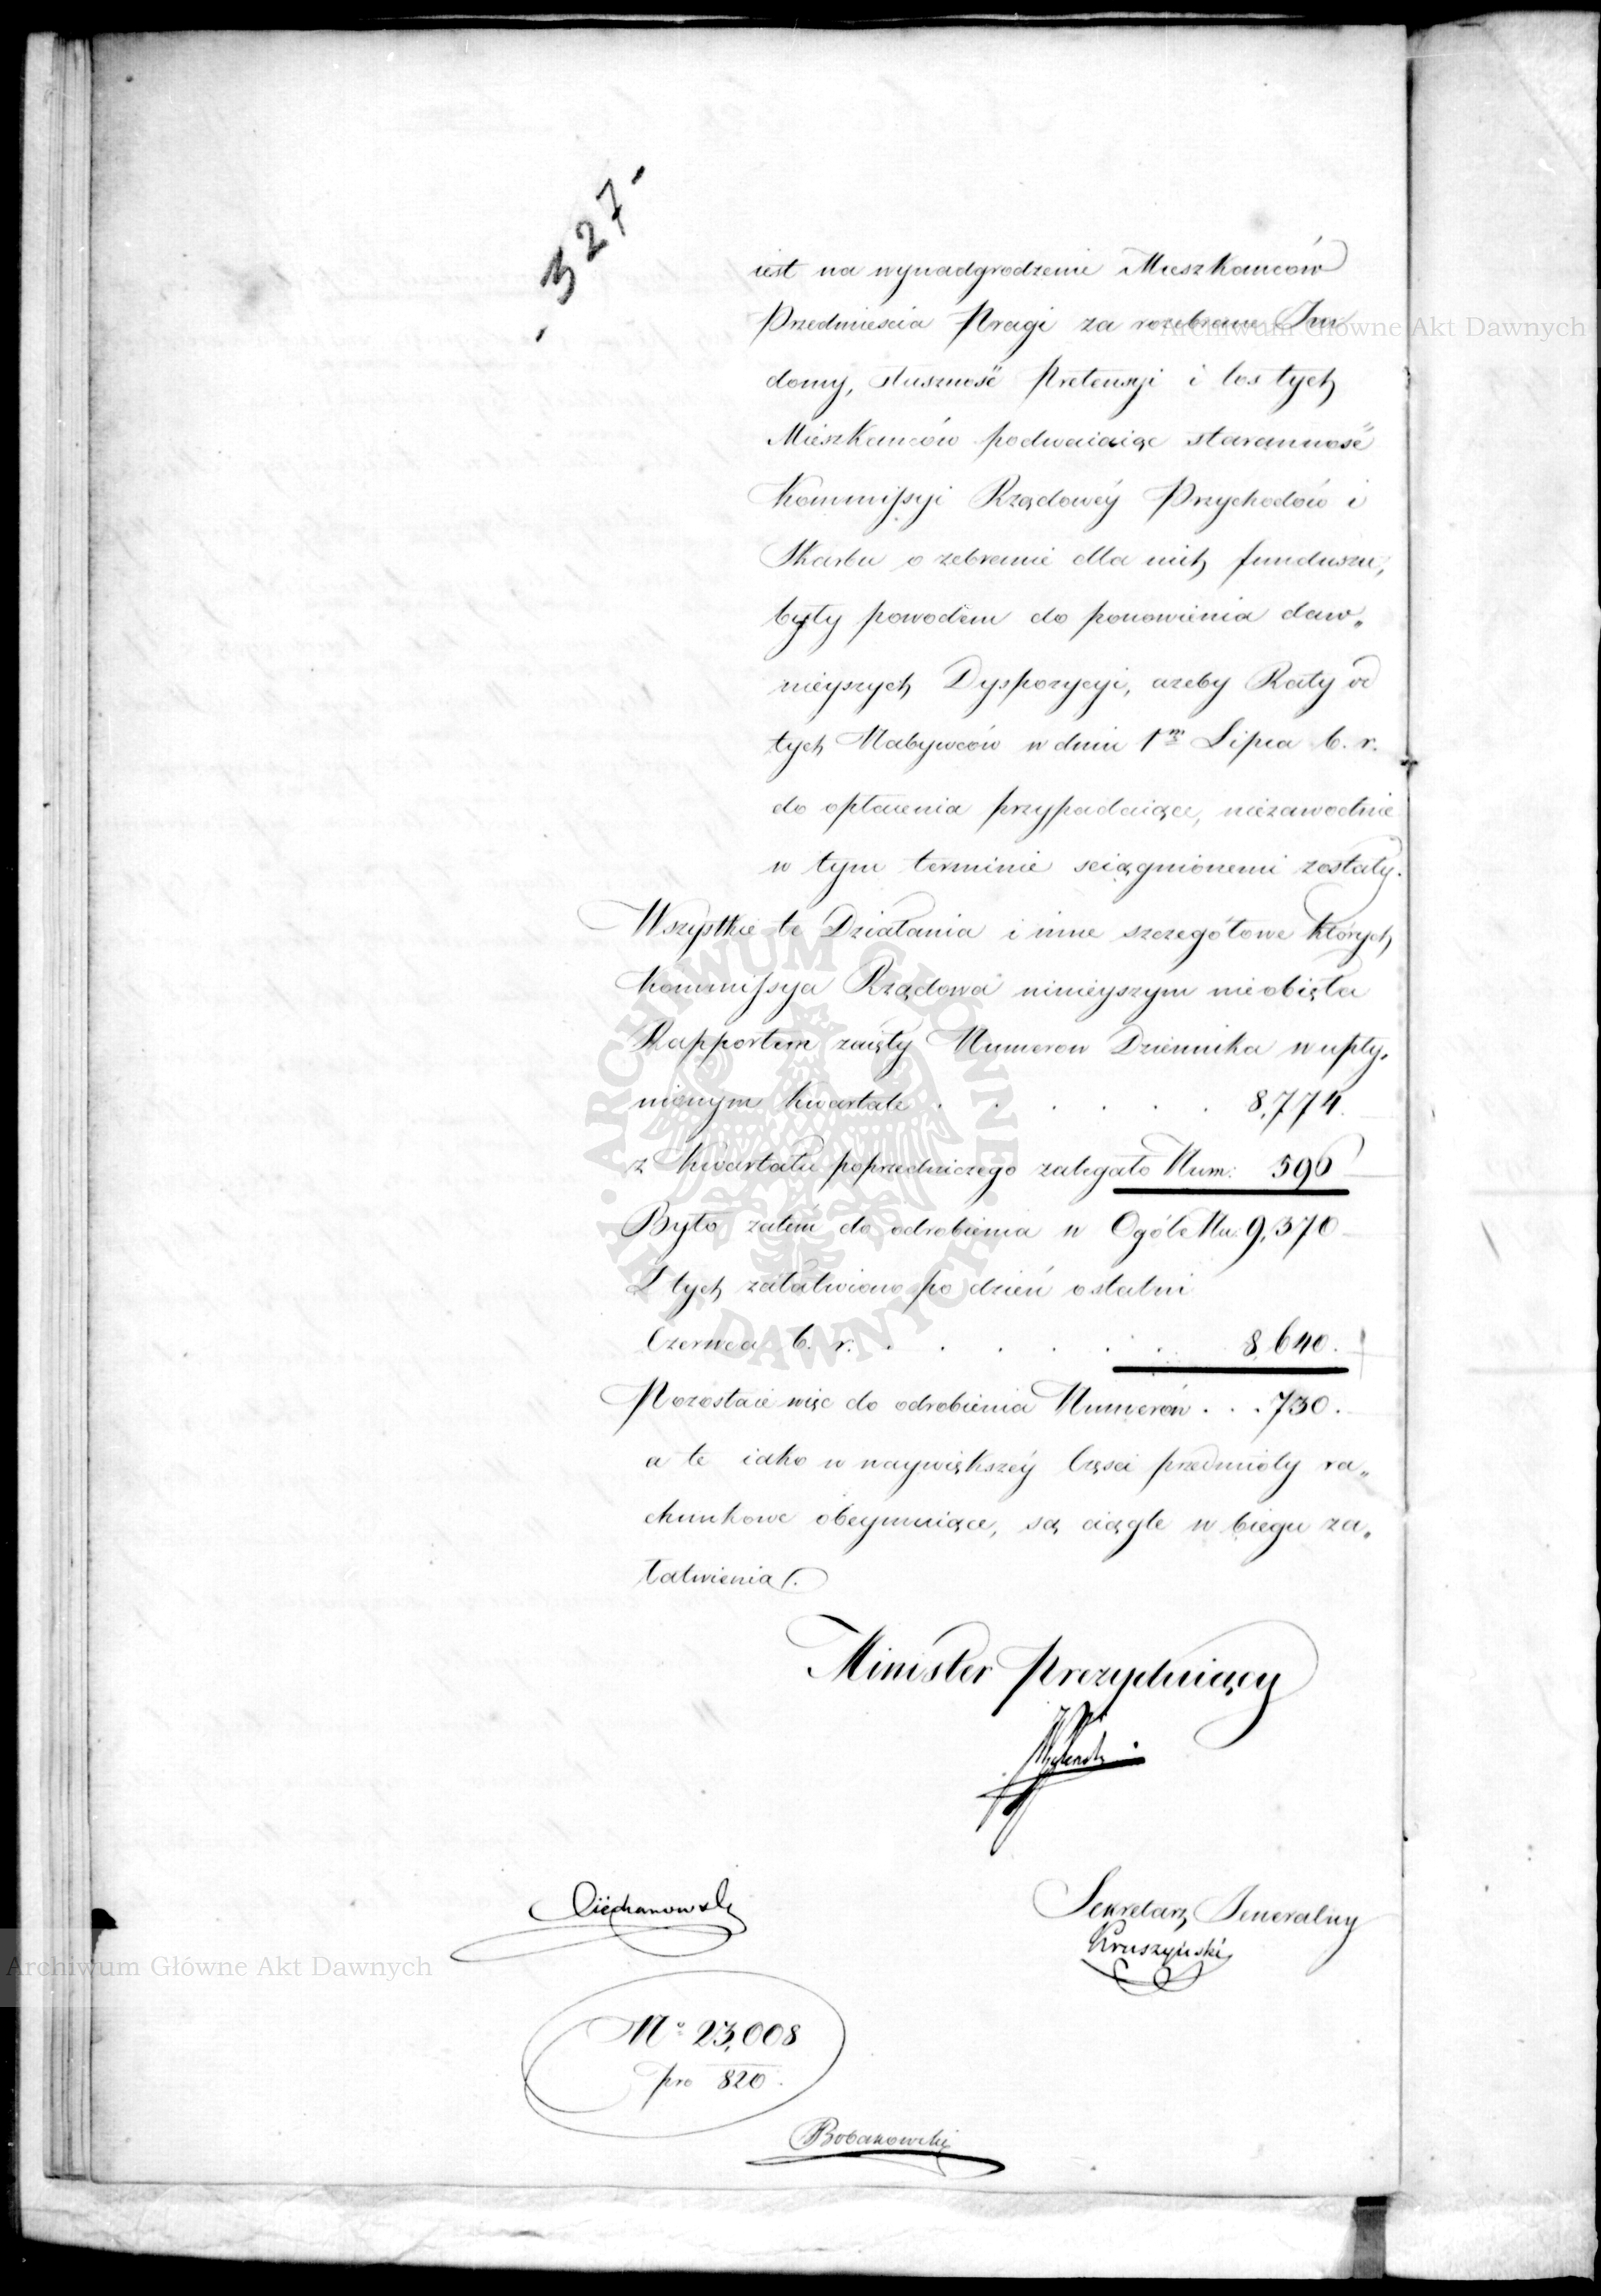 - 327 -
iest na wynadgrodzenie Mieszkańców
Przedmieścia Pragi za rozebrane Im
domy, słuszność Pretensyi i los tych
Mieszkańców podwaiaiąc staranność
Kommissyi Rządowéy Przychodów i
Skarbu o zebranie dla nich funduszu,
były powodem do ponowienia daw„
nieyszych Dyspozycyi, ażeby Raty od
tych Nabywców w dniu 1m Lipca b. r.
do opłacenia przypadaiące, niezawodnie
w tym terminie sciągnionemi zostały.
Wszystkie te Działania i inne szczegółowe których
Kommissya Rządowa ninieyszym nieobięła
Rapportem zaięły Numerow Dziennika w upły„
nionym kwartale . . . . . . 8,774.
z kwartału poprzedniczego zaległo Num: 596
Było zatem do odrobienia w Ogóle Nu: 9,370
Z tych załatwiono po dzień ostatni
Czerwca b. r. . . . . . . 8,640.
Pozostaie więc do odrobienia Numerów . . . 730.
a te iako w naywiększéy Części przedmioty ra„
chunkowe obeymuiące, są ciągle w biegu za„
łatwienia.
Minister Prezyduiący
Ciechanowski
Sekretarz Jeneralny
Kruszyński
No 23,008
pro 820.
Bobakowski
Archiwum Główne Akt Dawnych
Archiwum Główne Akt Dawnych
ARCHIWUM GŁÓWNE AKT DAWNYCH